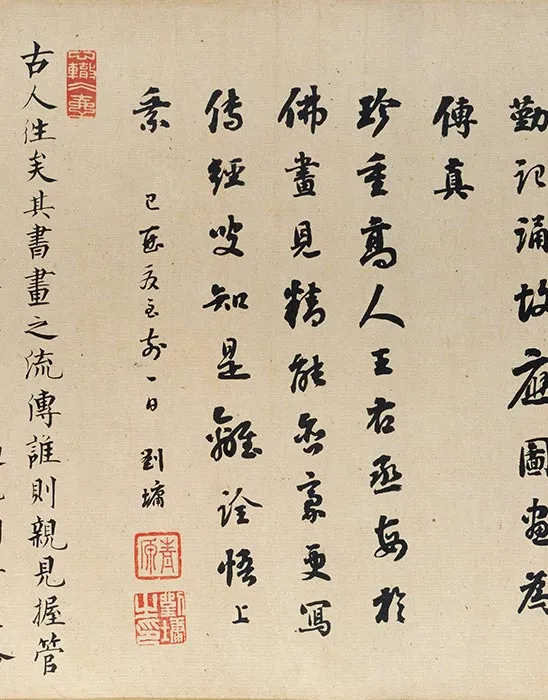 勤記誦故應圖畫為
傳真
珍重高人王右丞每於
佛畫見精能含豪更寫
傳經叟知是離詮悟上
乘
己酉夏至前一日 劉墉
劉墉之印
古人往矣其書畫之流傳誰則親見握管